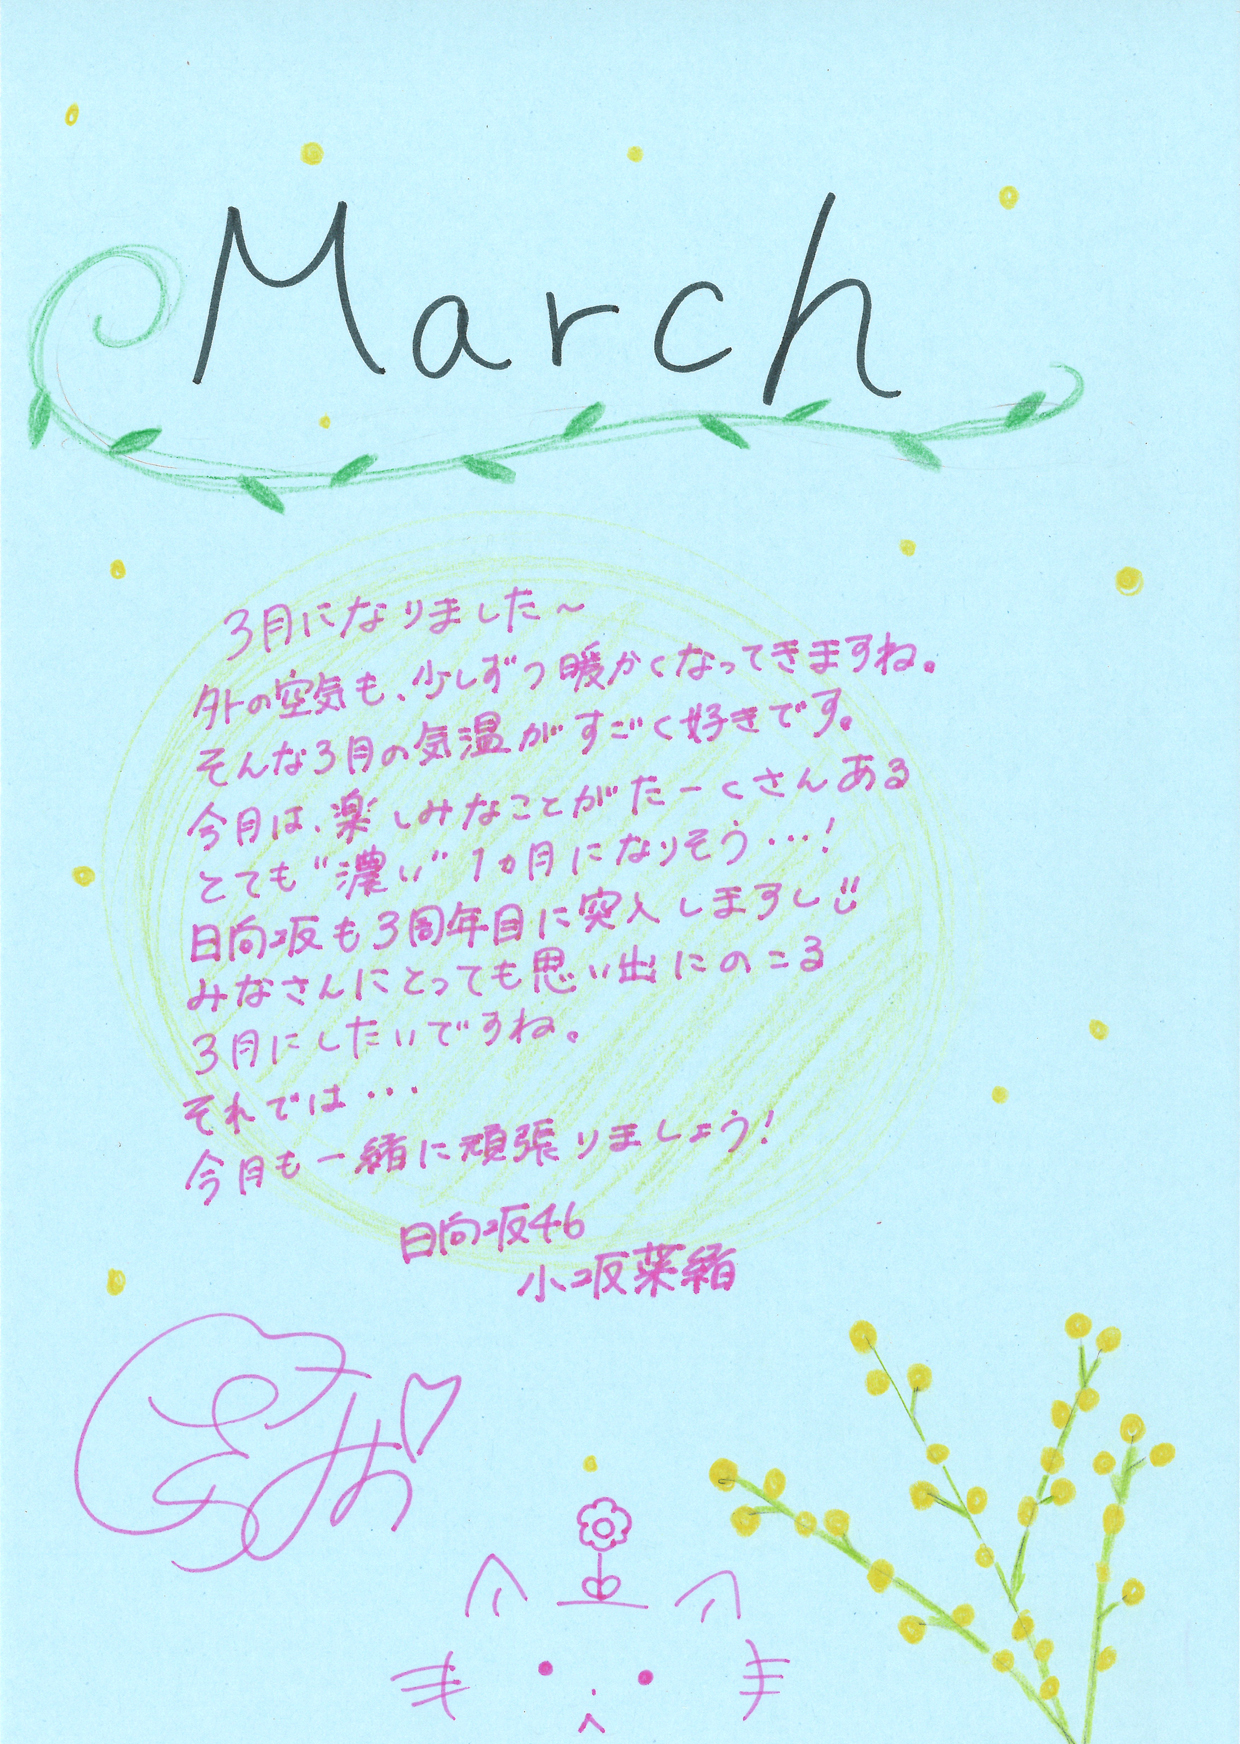 March
3月になりました~
外の空気も、少しずつ暖かくなってきますね。
そんな3月の気温がすごく好きです。
今月は、楽しみなことがたーくさんある
とても"濃い"1ヵ月になりそう…!
日向坂も3周年目に突入しますし
みなさんにとっても思い出にのこる
3月にしたいですね。
それでは…
今月も一緒に頑張りましょう!
日向坂46
小坂菜緒